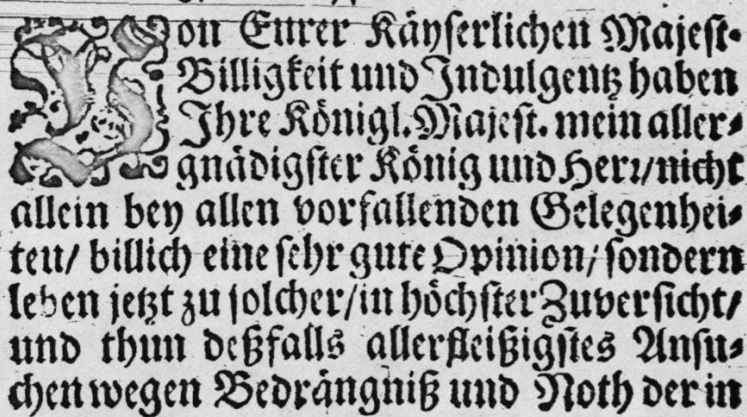 Von Eurer Käyserlichen Majest.
Billigkeit und Indulgentz haben
Ihre Königl. Majest. mein aller-
gnädigster König und Herr/ nicht
allein bey allen vorfallenden Gelegenhei-
ten/ billich eine sehr gute Opinion/ sondern
leben jetzt zu solcher/ in höchster Zuversicht/
und thun deßfalls allerfleißigstes Ansu-
chen wegen Bedrängniß und Noth der in